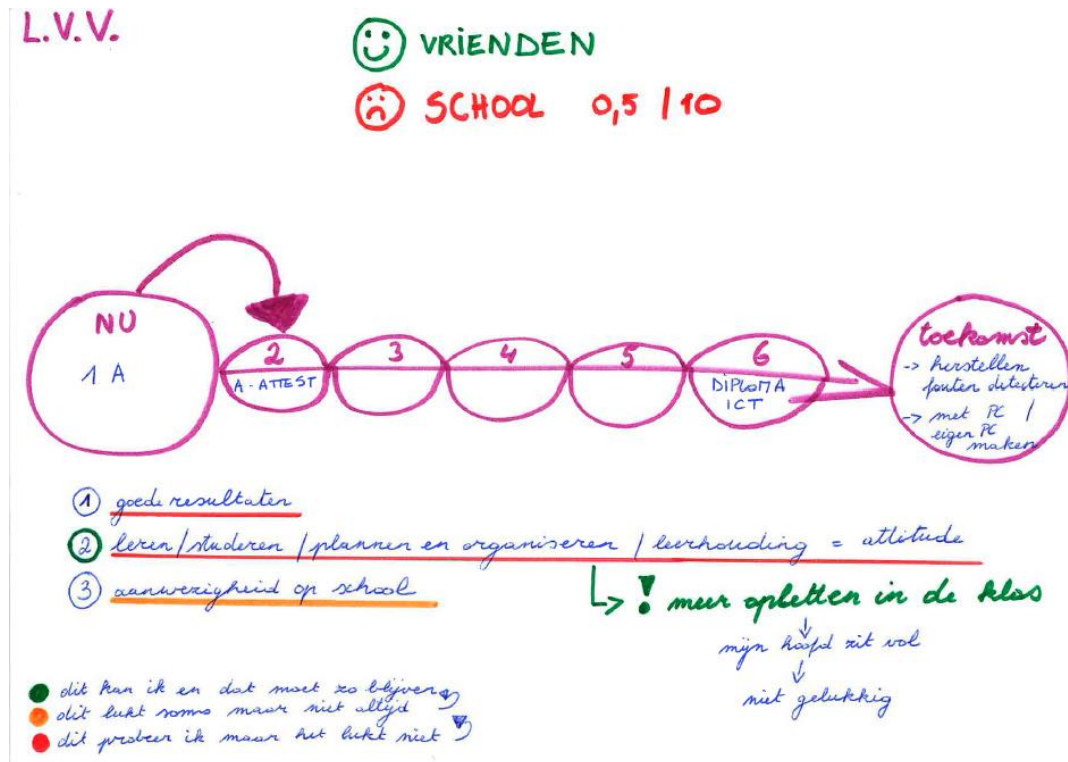 L.V.V.
VRIENDEN
SCHOOL 0,5 / 10
NU
1 A
2
A-ATTEST
3
4
5
6
DIPLOMA
ICT
toekomst
-> herstellen
fouten detecteren
-> met PC /
eigen PC
maken
1 goede resultaten
2 leren / studeren / plannen en organiseren / leerhouding = attitude
3 aanwezigheid op school
! meer opletten in de klas
mijn hoofd zit vol
niet gelukkig
dit kan ik en dat moet zo blijven
dit lukt soms maar niet altijd
dit probeer ik maar het lukt niet